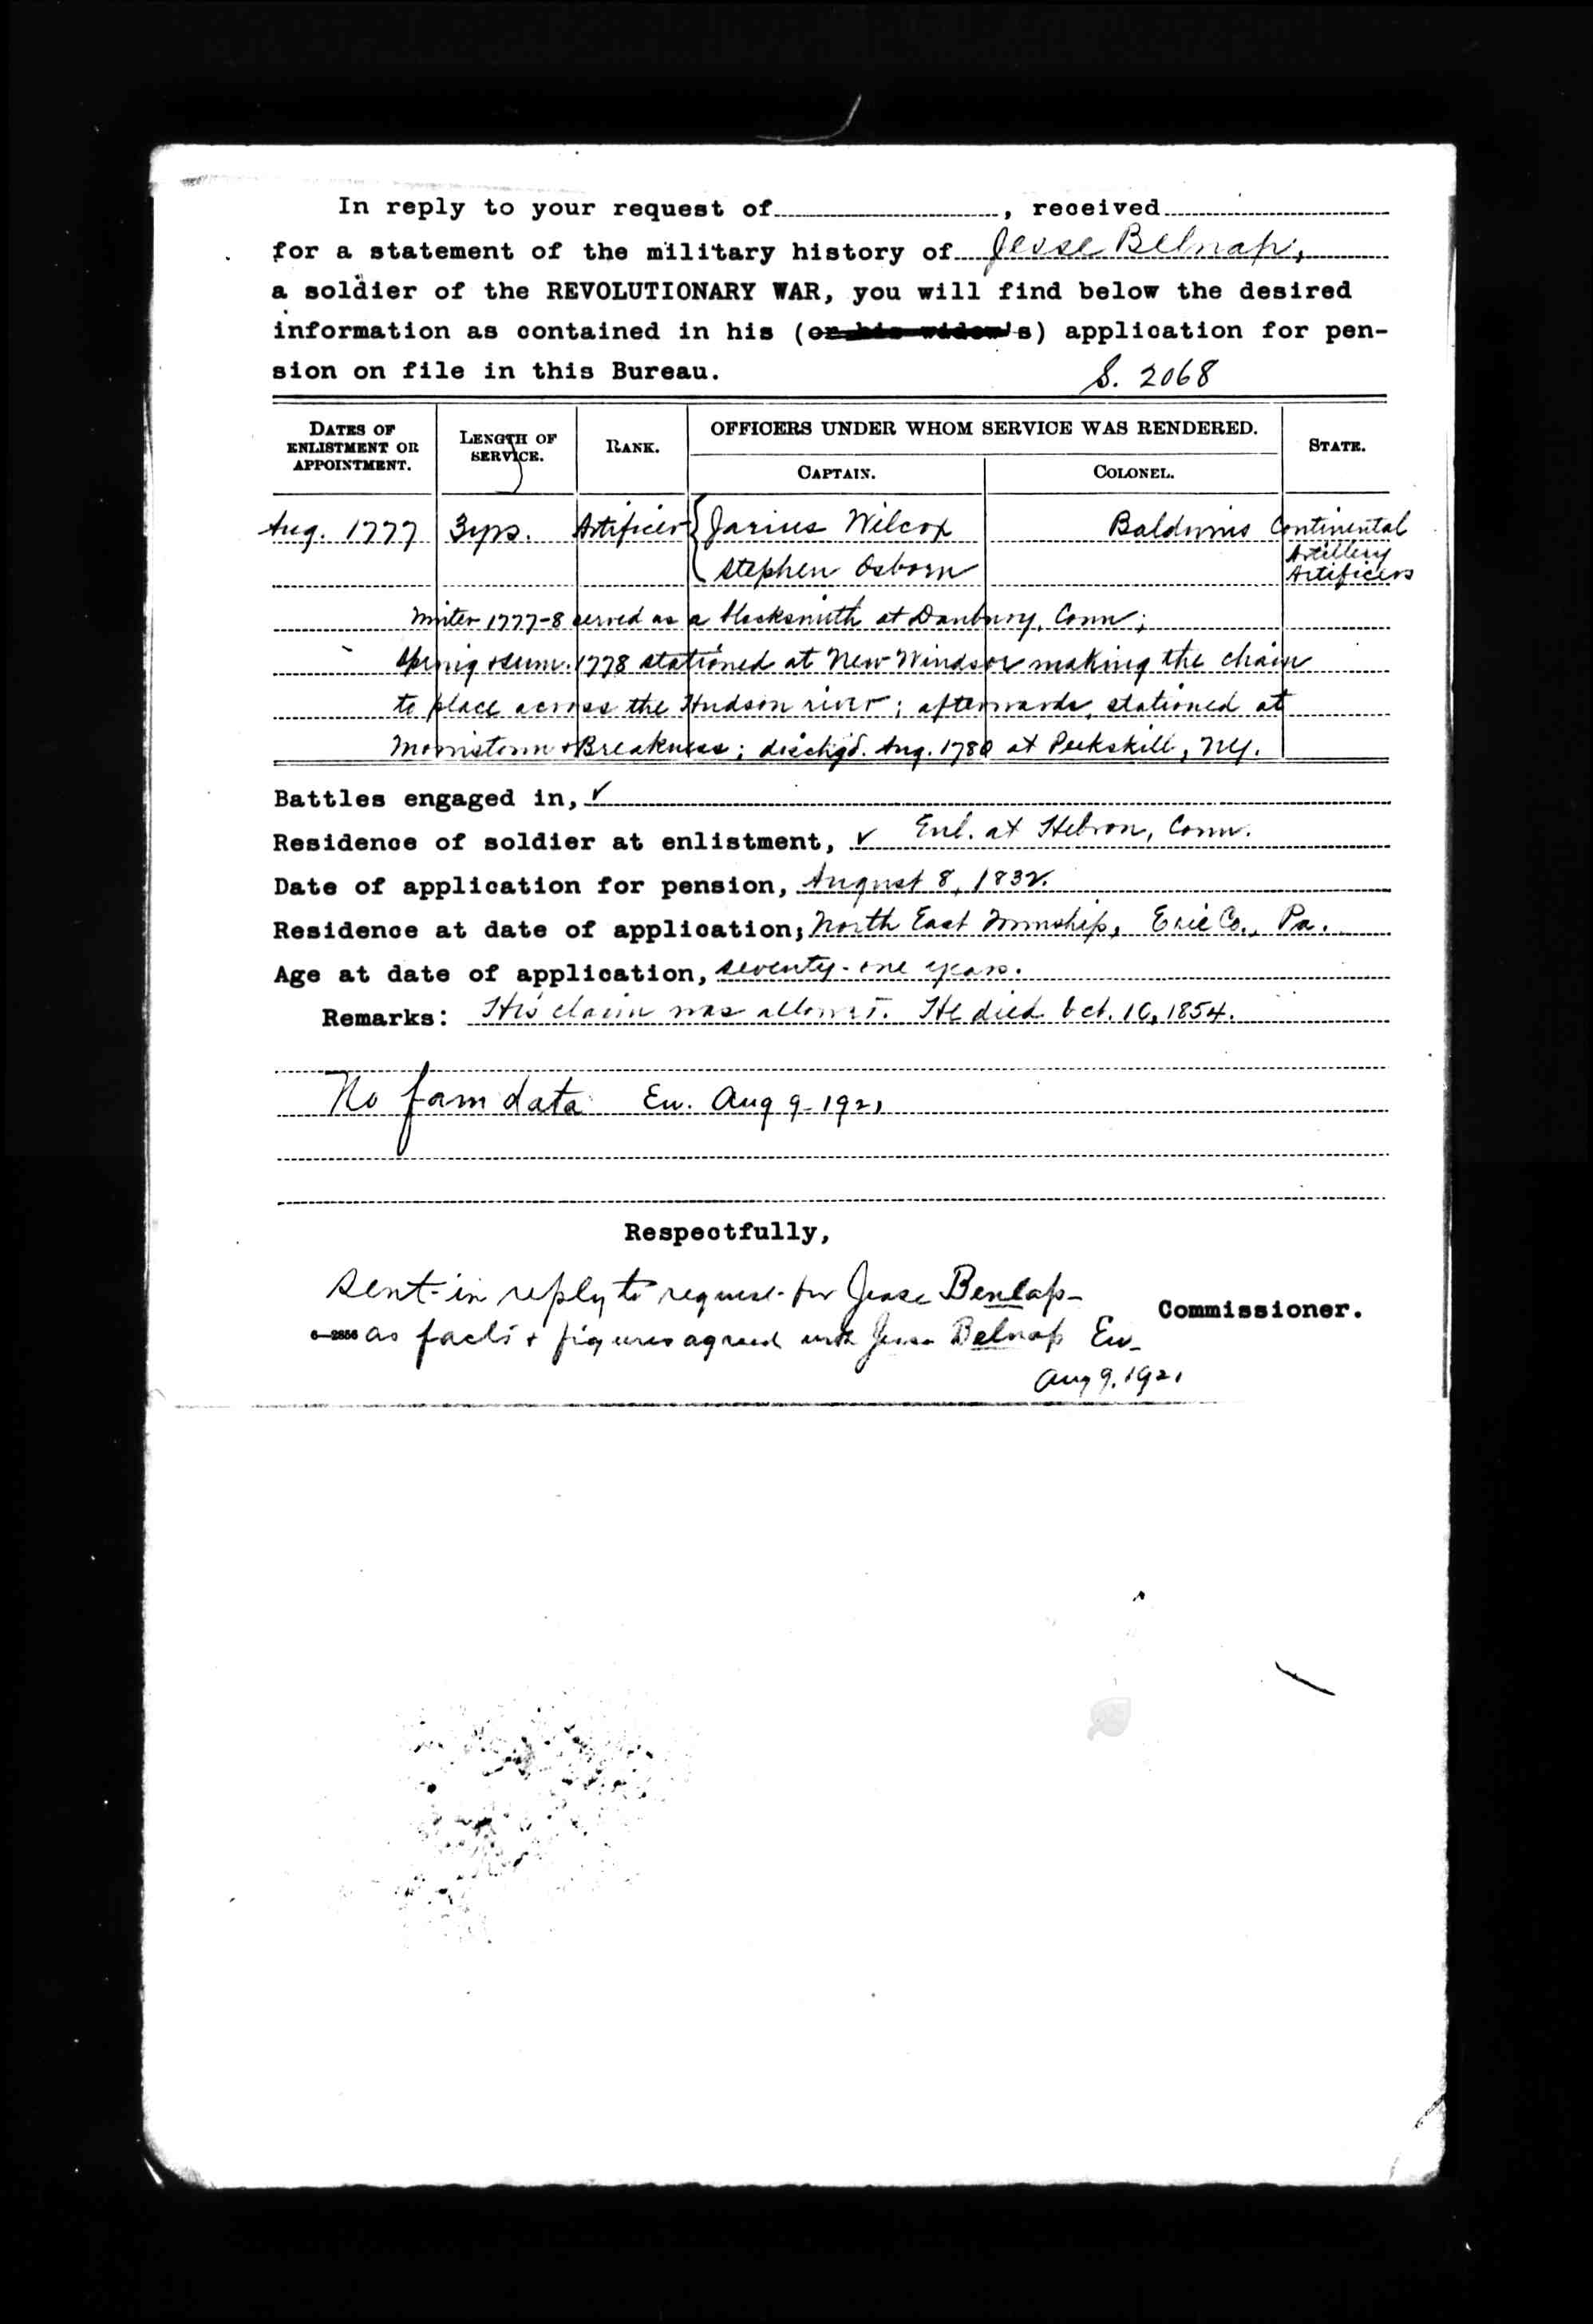 In reply to your request of , received
for a statement of the military history of Jesse Belnap,
a soldier of the REVOLUTIONARY WAR, you will find below the desired
information as contained in his (or his widow's) application for pen-
sion on file in this Bureau.
S. 2068
DATES OF ENLISTMENT OR APPOINTMENT. LENGTH OF SERVICE. RANK. OFFICERS UNDER WHOM SERVICE WAS RENDERED. STATE.
CAPTAIN. COLONEL.
Aug. 1777 3 yrs. Artificer Jarius Wilcox Baldwins Continental
Artillery
Stephen Osborn Artificers
Winter 1777-8 served as a blacksmith at Danbury, Conn;
Spring & sum. 1778 stationed at New Windsor making the chain
to place across the Hudson river; afterwards, stationed at
Morristown & Breakness; dischg'd. Aug. 1780 at Peekskill, NY.
Battles engaged in, ✓
Residence of soldier at enlistment, ✓ Enl. at Hebron, Conn.
Date of application for pension, August 8, 1832.
Residence at date of application; North East Township, Erie Co., Pa.
Age at date of application, seventy-one years.
Remarks: His claim was allowed. He died Oct. 16, 1854.
No fam data Ew. Aug 9-1921
Respectfully,
Sent in reply to request for Jesse Benlap-
Commissioner.
6-2856 as facts & figures agreed with Jesse Belnap Ew-
Aug 9, 1921